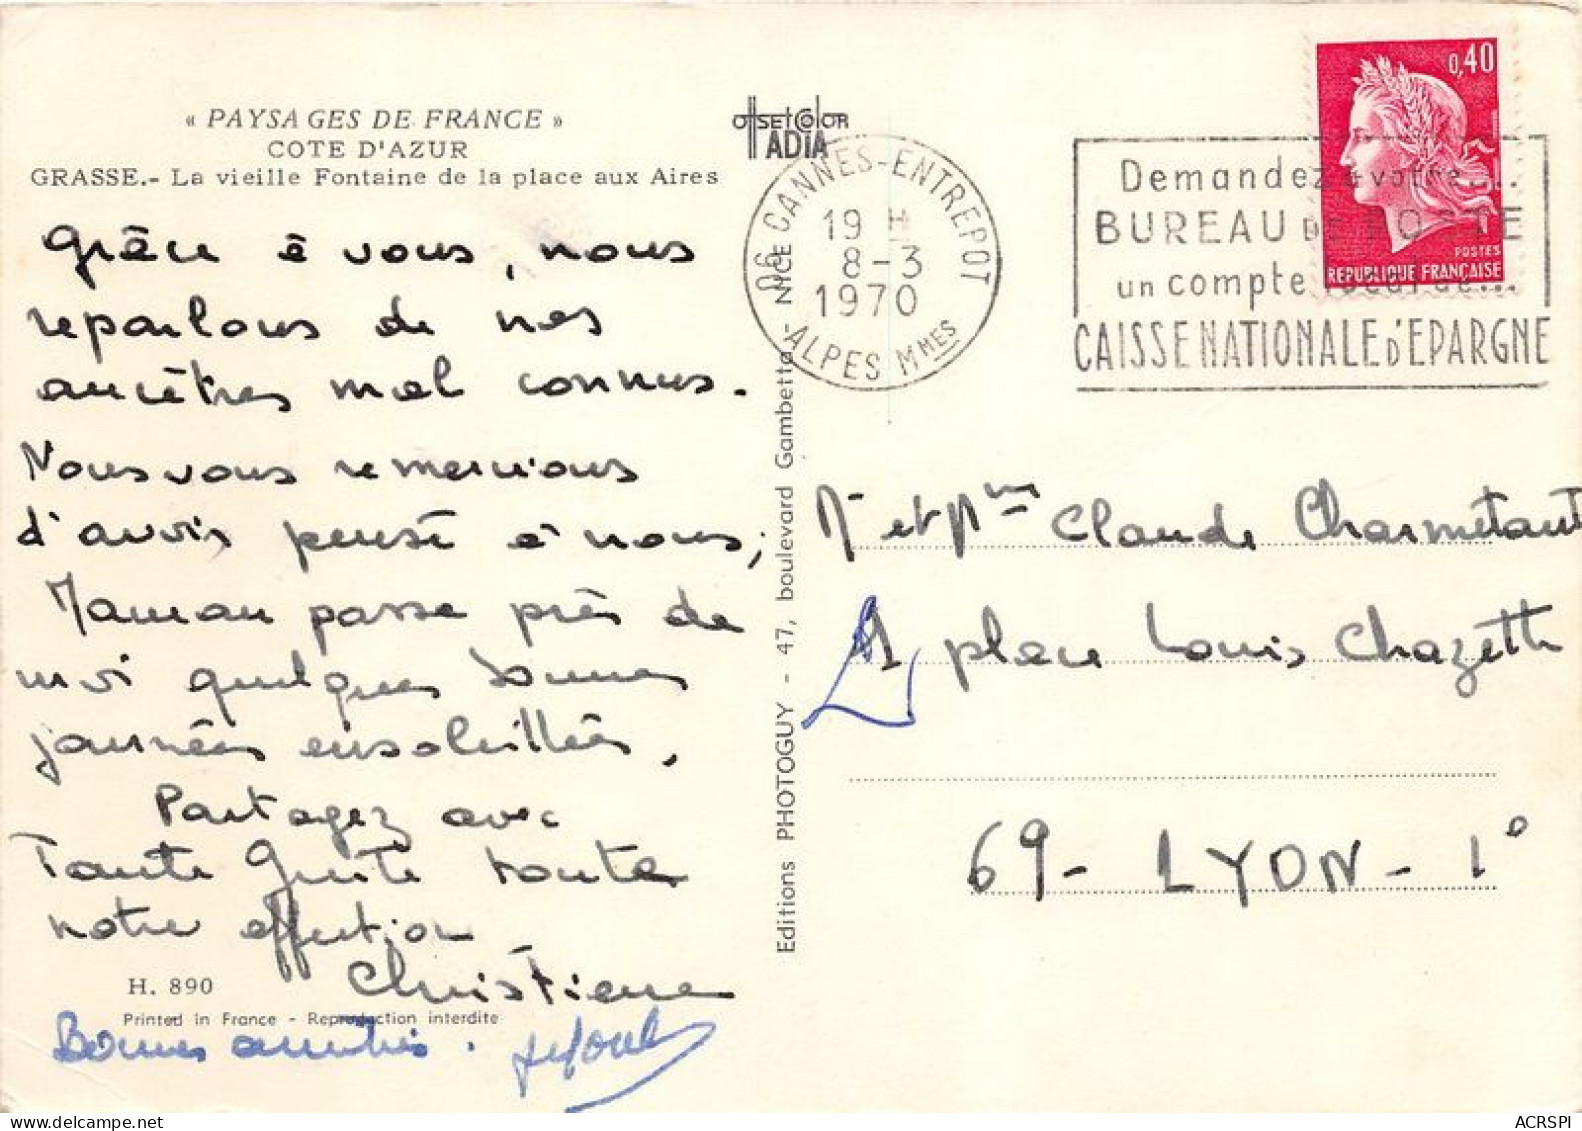 « PAYSAGES DE FRANCE »
COTE D'AZUR
GRASSE.- La vieille Fontaine de la place aux Aires
Grâce à vous, nous
reparlons de nos
ancêtres mal connus.
Nous vous remercions
d'avoir pensé à nous,
Maman passe près de
moi quelques bonnes
journées ensoleillées,
Partagez avec
Tante Guite toute
notre affection
Christiane
H. 890
Printed in France - Reproduction interdite
Bonnes amitiés.
Editions PHOTOGUY - 47, boulevard Gambetta - NICE
offset color
ADIA
06 CANNES-ENTREPOT
19 H
8-3
1970
ALPES Mmes
0,40
POSTES
REPUBLIQUE FRANÇAISE
Demandez à votre...
BUREAU DE POSTE
un compte idéal de...
CAISSE NATIONALE D'EPARGNE
Mr et Mme Claude Charmetant
1 place Louis Chazette
69 - LYON - 1°
ACRSPI